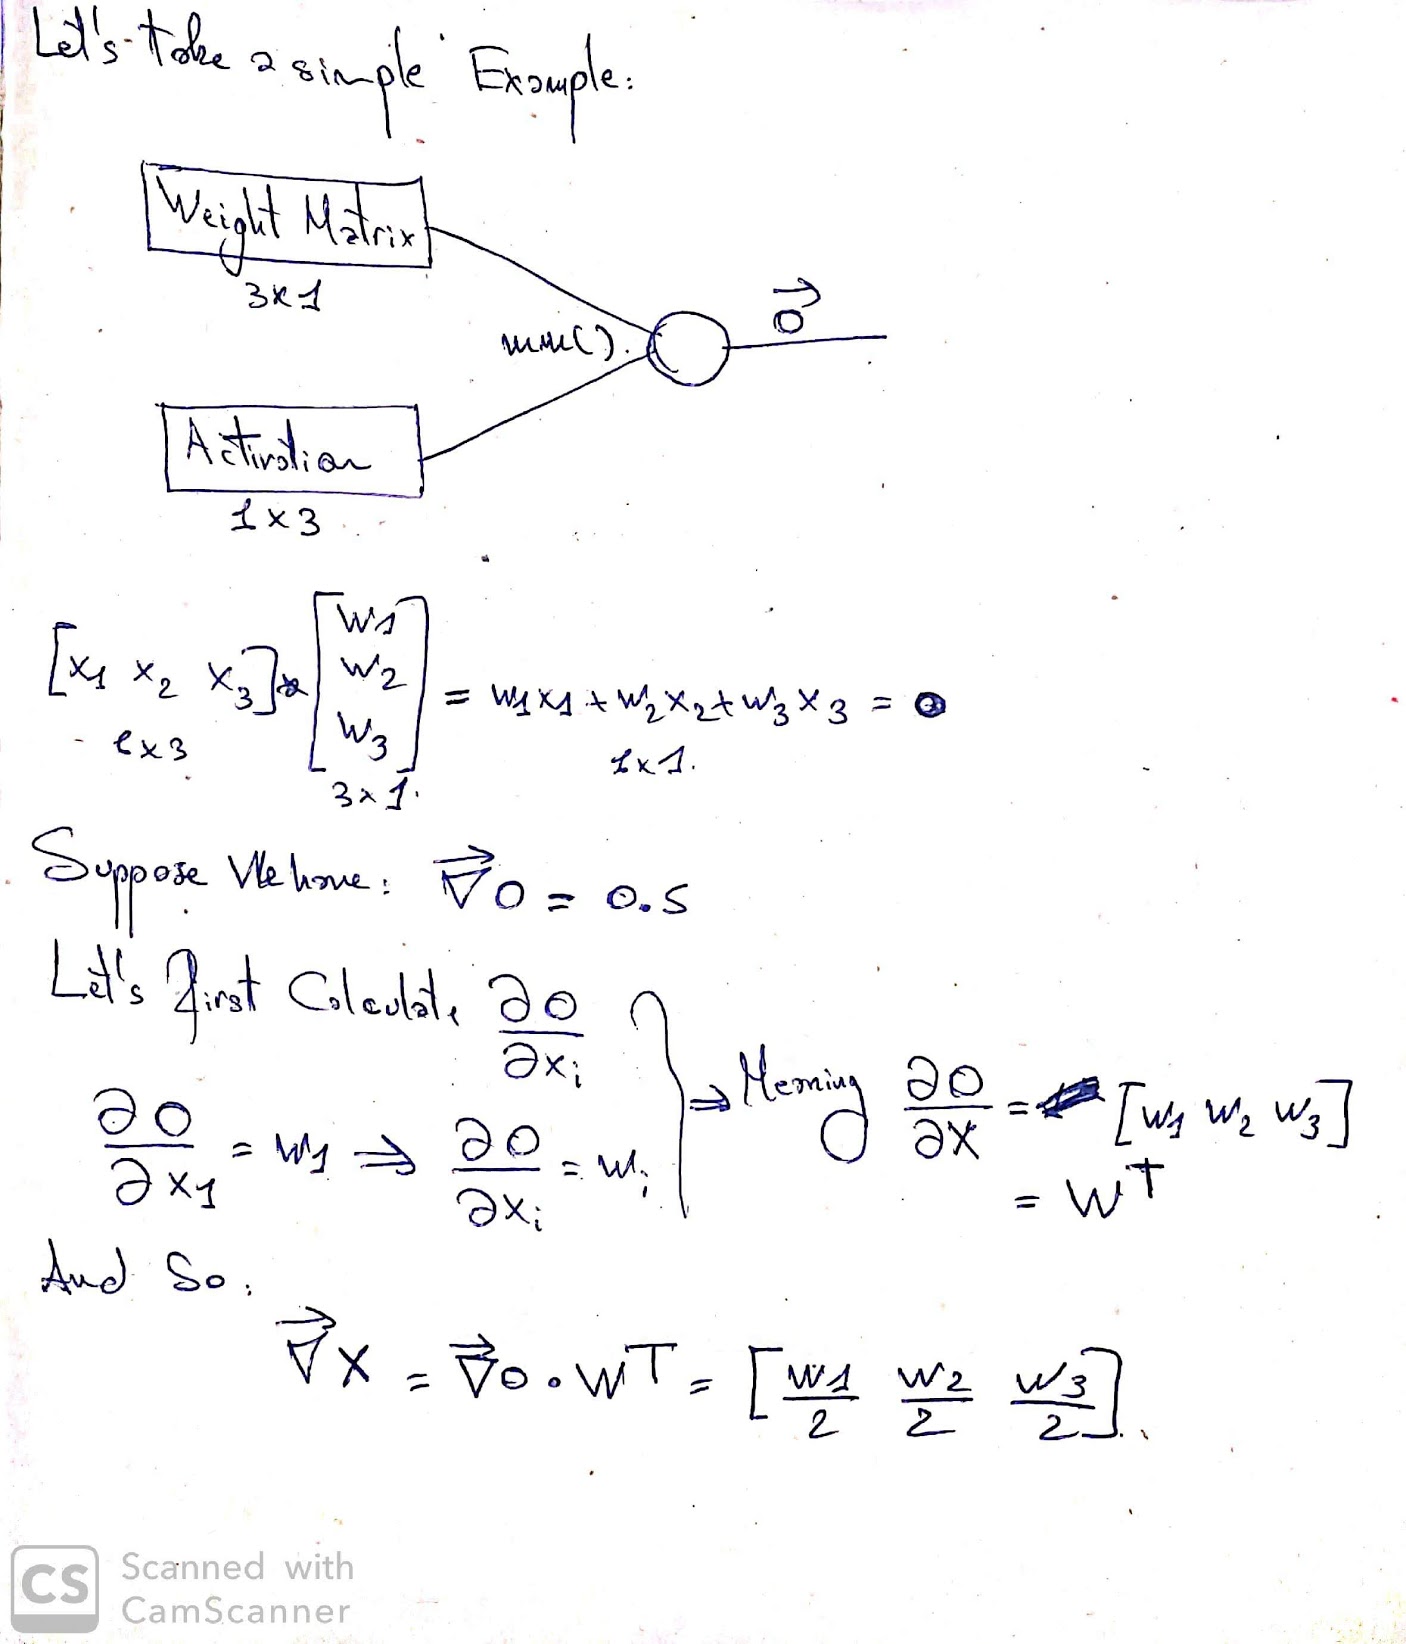 Let's take a simple Example:
Weight Matrix
3x1
mm().
O⃗
Activation
1x3
[x₁ x₂ x₃] * [w1 w2 w3] = w₁x₁ + w₂x₂ + w₃x₃ = O
1x3
3x1.
1x1.
Suppose We have: ∇⃗O = 0.5
Let's first Calculate ∂O/∂xᵢ
∂O/∂x₁ = w₁ ⇒ ∂O/∂xᵢ = wᵢ } ⇒ Meaning ∂O/∂X = [w₁ w₂ w₃]
= Wᵀ
And So:
∇⃗X = ∇⃗O . Wᵀ = [w1/2 w2/2 w3/2].
CS Scanned with
CamScanner